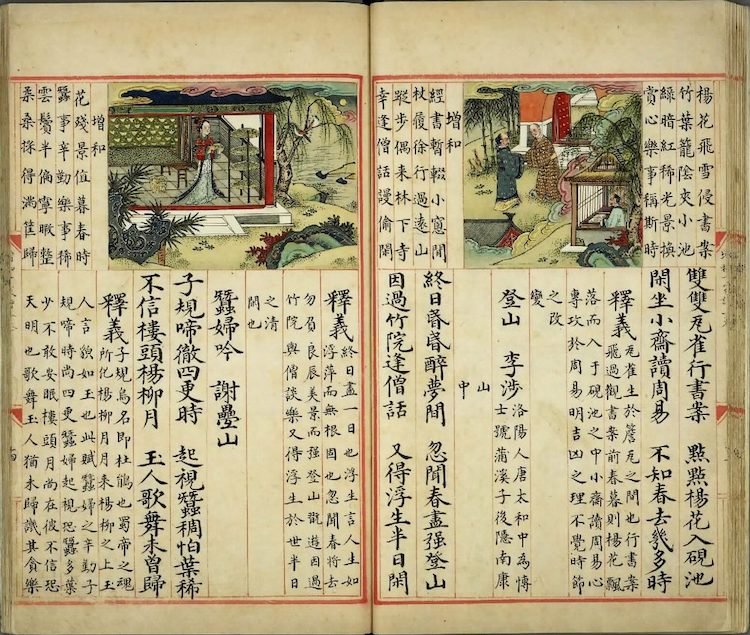 楊花飛雪侵書案
竹葉籠陰夾小池
綠暗紅稀光景換
賞心樂事稱斯時
雙雙瓦雀行書案 點點楊花入硯池
閑坐小齋讀周易 不知春去幾多時
釋義 瓦雀生於簷瓦之間也行書案
飛過觀書案前春暮則楊花飄
落而入于硯池之中小齋讀周易心
專攻於周易明吉凶之理不覺時節
之改
變
增和
經書暫輟小窻間
杖履徐行過遠山
蹤步偶来林下寺
幸逢僧話謾偷閑
登山 李涉 洛陽人唐太和中為博
士號蒲溪子後隱南康
山
中
終日昏昏醉夢間 忽聞春盡强登山
因過竹院逢僧話 又得浮生半日閑
釋義 終日盡一日也浮生言人生如
浮萍而無根固也忽聞春將去
勿負良辰美景而强登山觀遊因過
竹院與僧談樂又得浮生於世半日
之清
閒也
蠶婦吟 謝疊山
子規啼徹四更時 起視蠶稠怕葉稀
不信樓頭楊柳月 玉人歌舞未曾歸
增和
花殘景值暮春時
蠶事辛勤樂事稀
雲鬢半偏寧暇整
柔桑採得滿筐歸
釋義 子規鳥名即杜鵑也蜀帝之魂
所化楊柳月月来楊柳之上玉
人言貌如玉也此賦蠶婦之辛勤子
規啼時尚四更蠶婦起視恐蠶多葉
少不敢安眠樓頭月尚在彼不信恐
天明也歌舞玉人猶未歸譏其貪樂